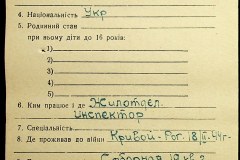 4. Національність Укр
5. Родинний стан
при ньому діти до 16 років:
1)
2)
3)
4)
5)
6. Ким працює і де Жилотдел.
инспектор
7. Спеціальність
8. Де проживав до війни Кривой-Рог.